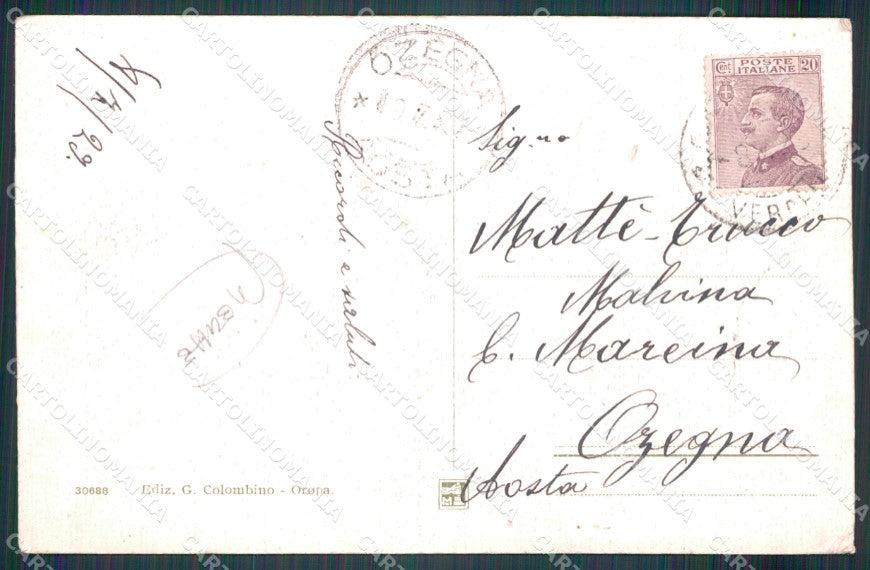 4/7/29.
OZEGNA
Ricordi e saluti
POSTE ITALIANE
Cent. 20
Sig.na
Mattè-Trucco
Malvina
C. Mareina
Ozegna
Aosta
30688 Ediz. G. Colombino - Oropa.
CARTOLINOMANIA